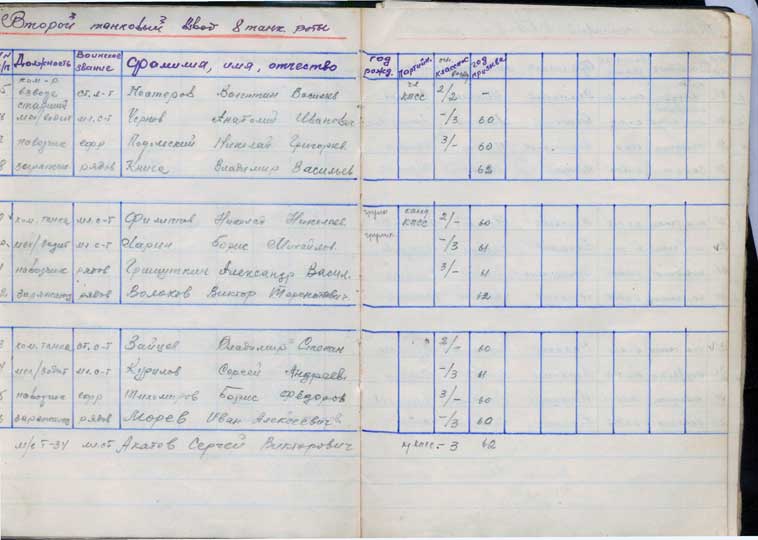 Второй танковый взвод 8 танк. роты
№ п/п Должность Воинское звание Фамилия, имя, отчество год рожд. Партийн. классн. год призыва
5 ком-р взвода ст. л-т Васильев чл КПСС 2/2 -
старший мех/водит мл. с-т Чернов Анатолий Иванович -/3 60
наводчик ефр Подольский Николай Григорьев 3/- 60
8 заряжающ рядов Книга Владимир Васильев 62
ком. танка мл. с-т Филиппов Николай Николаев канд КПСС 2/- 60
мех/водит мл с-т Ларин Борис Михайлов -/3 61
наводчик рядов Гришуткин Александр Васил. 3/- 61
2 заряжающ рядов Волоков Виктор 62
3 ком. танка ст. с-т Зайцев Владимир Степан 2/- 60
4 мех/водит мл. с-т Курилов Сергей Андреев. -/3 61
5 наводчик ефр Тихомиров Борис Федоров 3/- 60
заряжающ рядов Морев Иван Алексеевич -/3 60
м/в Т-34 мл ст Акатов Сергей Викторович - 3 62